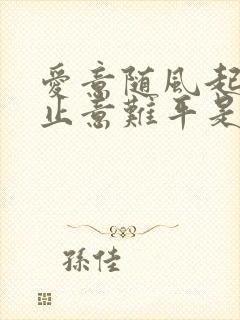 愛意随風起
止意難平是
孫佳